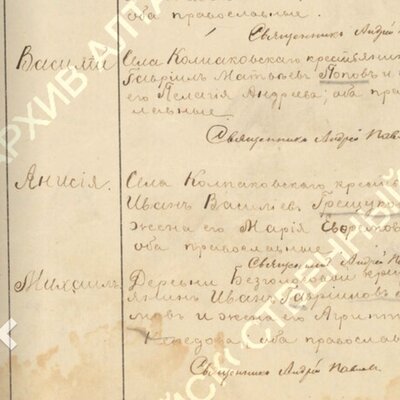 оба православные.
Священникъ Андрей
Василiй
Села Колпаковскаго крестьянинъ
Гаврiилъ Матвѣевъ Поповъ и
его Пелагiя Андреева; оба пра
лавные.
Священникъ Андрей Павло
Анисiя.
Села Колпаковскаго крестья
Иванъ Васильев.
жена его Марiя
оба православные
Священникъ Андрей П
Михаилъ
Деревни крес
янинъ Иванъ Гаврiиловъ
овъ и жена его Агрипп
оба православ
Священникъ Андрей Павлов
АРХИВ АЛТА